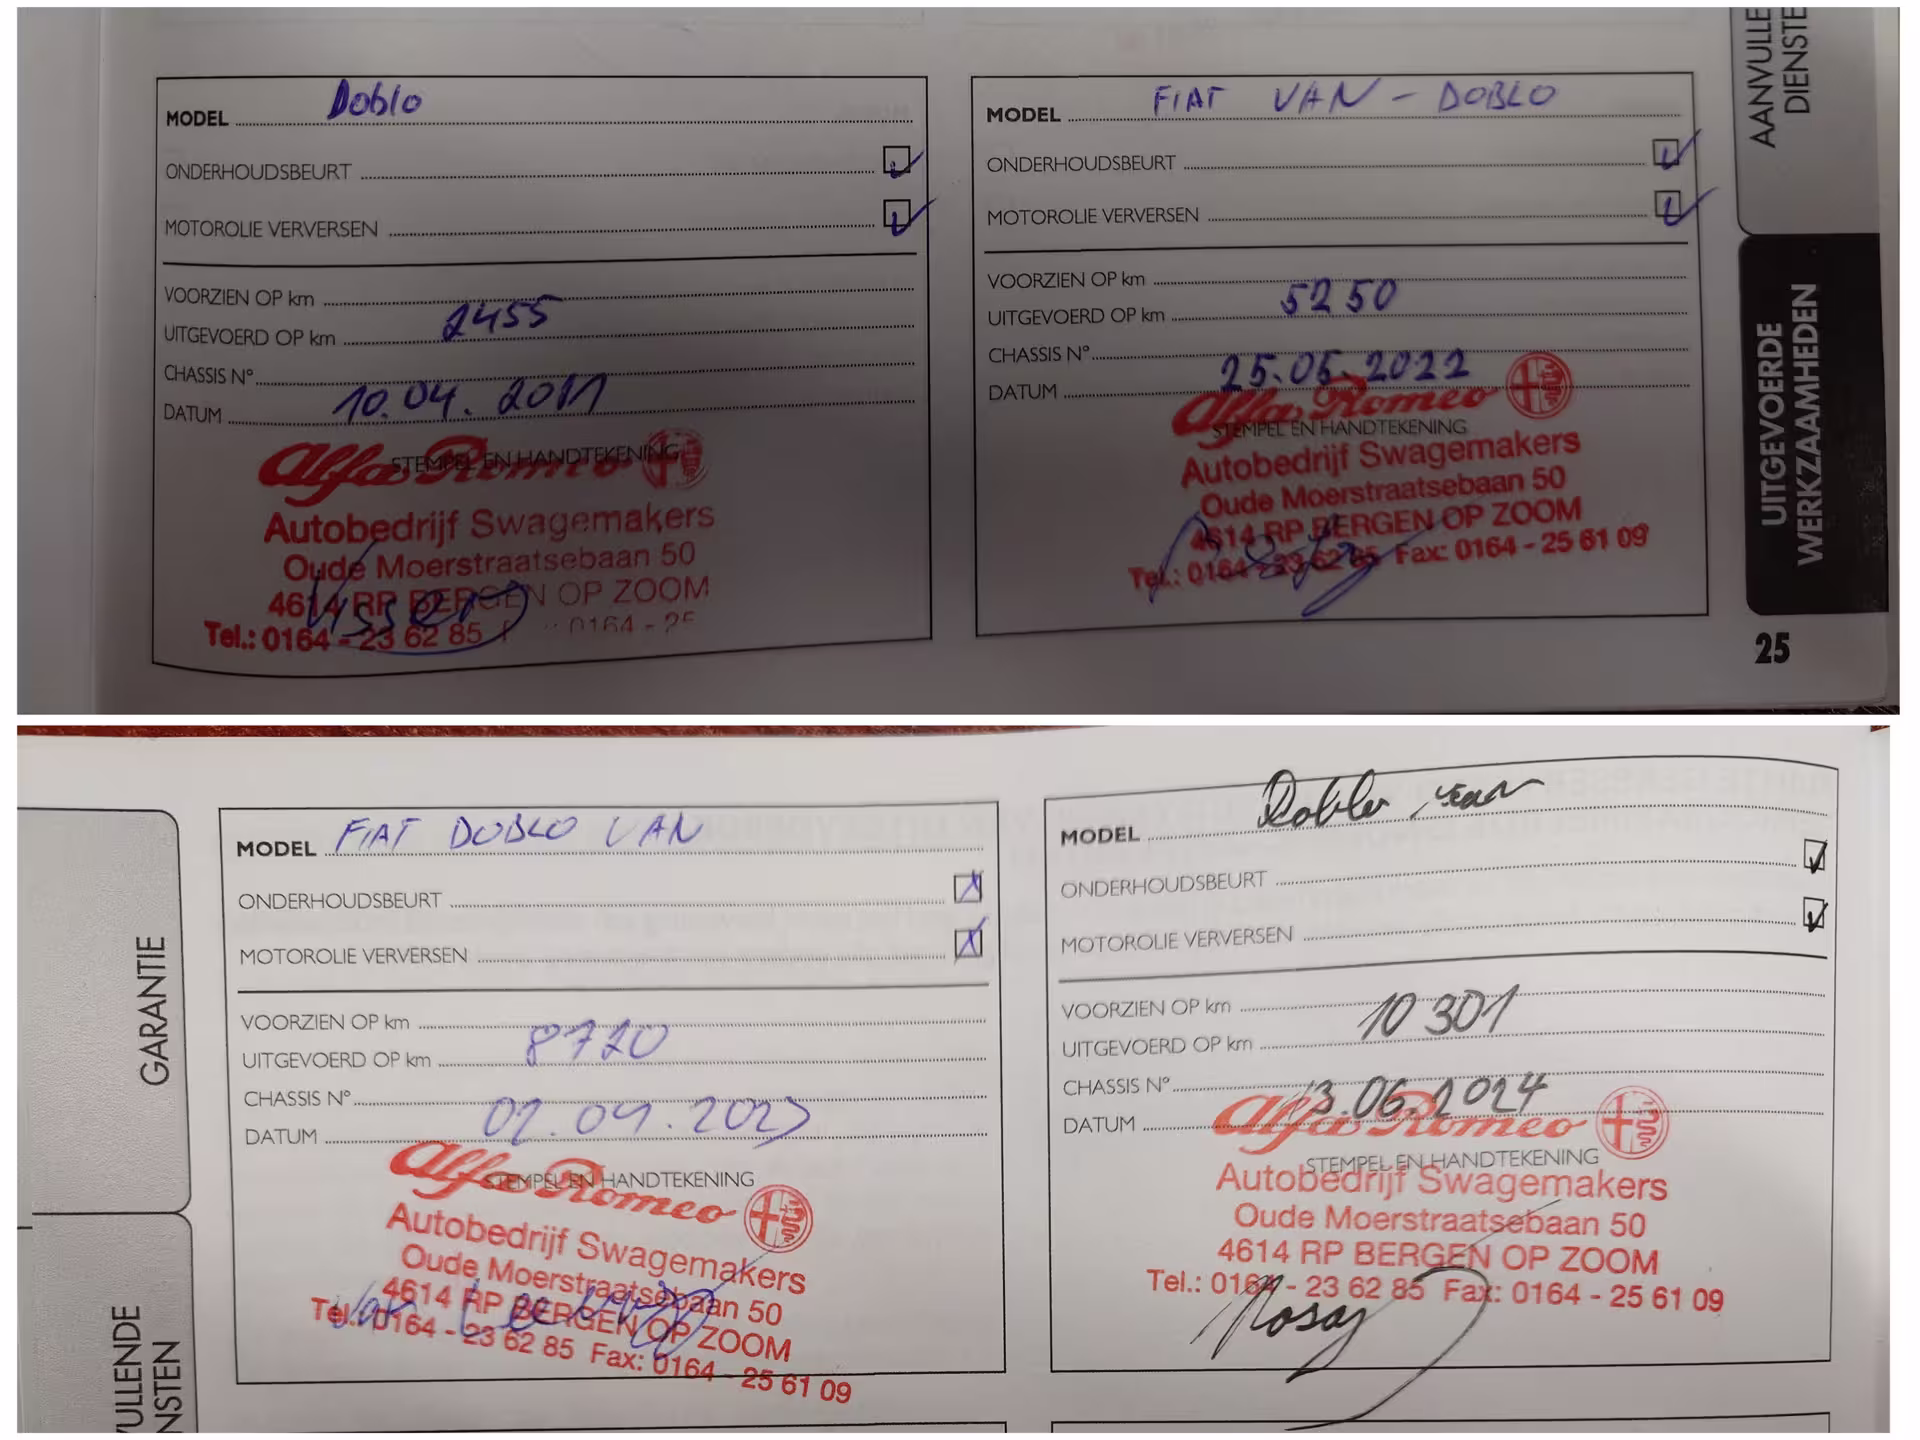 AANVULLE
DIENSTE
MODEL Doblo
ONDERHOUDSBEURT
MOTOROLIE VERVERSEN
VOORZIEN OP km
UITGEVOERD OP km 2455
CHASSIS N°
DATUM 10.04.2011
STEMPEL EN HANDTEKENING
Alfa Romeo
Autobedrijf Swagemakers
Oude Moerstraatsebaan 50
4614 RP BERGEN OP ZOOM
Tel.: 0164 - 23 62 85 F : 0164 - 25
Visser
MODEL FIAT VAN - DOBLO
ONDERHOUDSBEURT
MOTOROLIE VERVERSEN
VOORZIEN OP km
UITGEVOERD OP km 5250
CHASSIS N°
DATUM 25.05.2022
Alfa Romeo
STEMPEL EN HANDTEKENING
Autobedrijf Swagemakers
Oude Moerstraatsebaan 50
4614 RP BERGEN OP ZOOM
Tel.: 0164 - 23 62 85 Fax: 0164 - 25 61 09
UITGEVOERDE
WERKZAAMHEDEN
25
GARANTIE
VULLENDE
NSTEN
MODEL FIAT DOBLO VAN
ONDERHOUDSBEURT
MOTOROLIE VERVERSEN
VOORZIEN OP km
UITGEVOERD OP km 8720
CHASSIS N°
DATUM 02.04.2023
STEMPEL EN HANDTEKENING
Alfa Romeo
Autobedrijf Swagemakers
Oude Moerstraatsebaan 50
4614 RP BERGEN OP ZOOM
Tel.: 0164 - 23 62 85 Fax: 0164 - 25 61 09
MODEL Doblo van
ONDERHOUDSBEURT
MOTOROLIE VERVERSEN
VOORZIEN OP km
UITGEVOERD OP km 10301
CHASSIS N°
DATUM 13.06.2024
Alfa Romeo
STEMPEL EN HANDTEKENING
Autobedrijf Swagemakers
Oude Moerstraatsebaan 50
4614 RP BERGEN OP ZOOM
Tel.: 0164 - 23 62 85 Fax: 0164 - 25 61 09